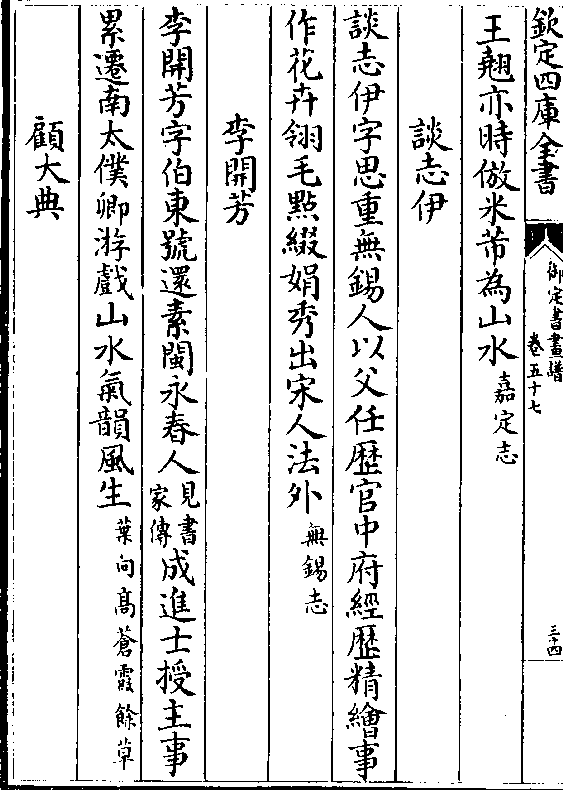 欽定四庫全書
御定書畫譜
卷五十七
三十四
王翹亦時倣米芾為山水嘉定志
談志伊
談志伊字思重無錫人以父任歴官中府經歴精繪事
作花卉翎毛點綴娟秀出宋人法外無錫志
李開芳
李開芳字伯東號還素閩永春人見書家傳成進士授主事
累遷南太僕卿游戲山水氣韻風生葉向髙蒼霞餘草
顧大典